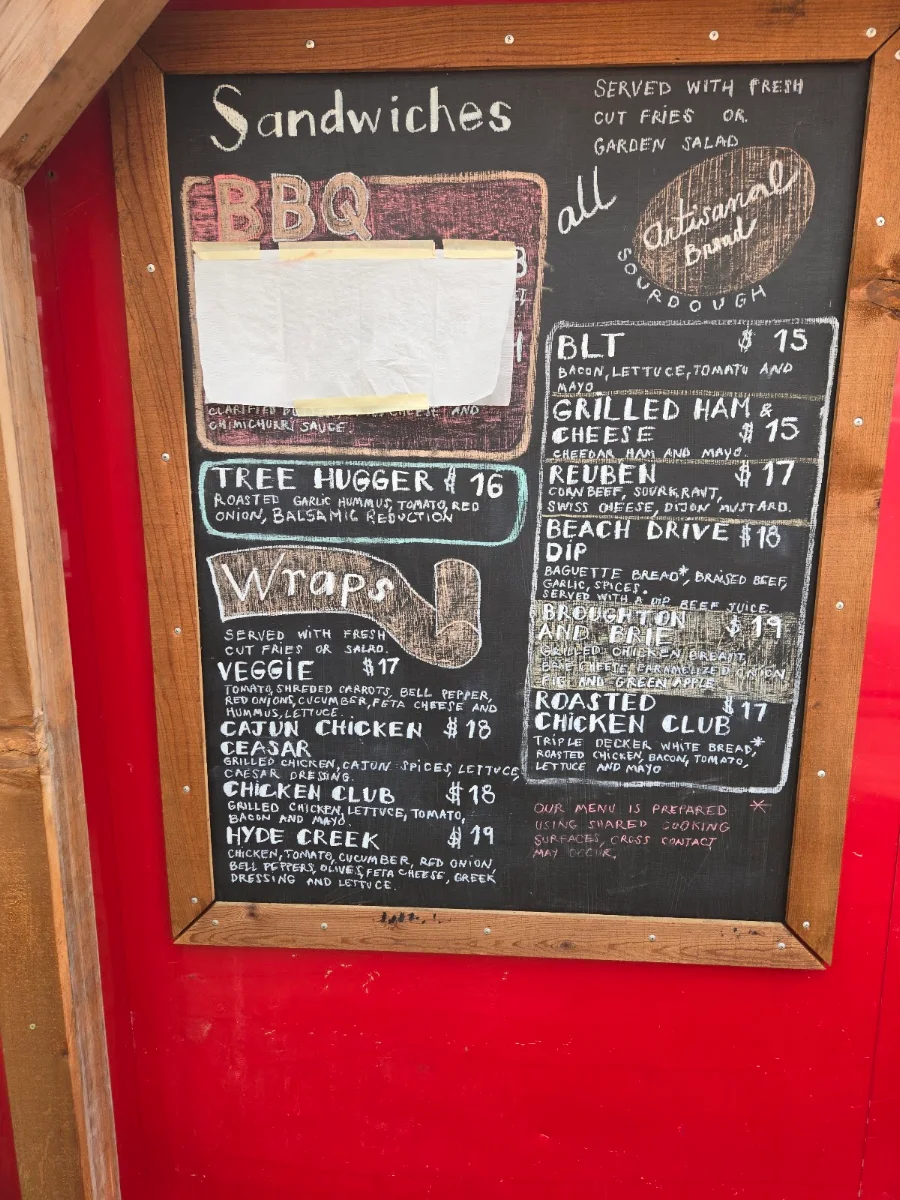 Sandwiches
SERVED WITH FRESH
CUT FRIES OR
GARDEN SALAD
all
Artisanal
Bread
SOURDOUGH
BBQ
CHIMICHURRI SAUCE.
TREE HUGGER $ 16
ROASTED GARLIC HUMMUS, TOMATO, RED
ONION, BALSAMIC REDUCTION
Wraps
SERVED WITH FRESH
CUT FRIES OR SALAD.
VEGGIE $17
TOMATO, SHREDED CARROTS, BELL PEPPER,
RED ONIONS, CUCUMBER, FETA CHEESE AND
HUMMUS, LETTUCE.
CAJUN CHICKEN $ 18
CEASAR
GRILLED CHICKEN, CAJUN SPICES, LETTUCE,
CAESAR DRESSING.
CHICKEN CLUB $18
GRILLED CHICKEN, LETTUCE, TOMATO,
BACON AND MAYO.
HYDE CREEK $ 19
CHICKEN, TOMATO, CUCUMBER, RED ONION,
BELL PEPPERS, OLIVES, FETA CHEESE, GREEK
DRESSING AND LETTUCE.
BLT $ 15
BACON, LETTUCE, TOMATO AND
MAYO
GRILLED HAM &
CHEESE $ 15
CHEEDAR HAM AND MAYO.
REUBEN $ 17
CORN BEEF, SOURKRAUT,
SWISS CHEESE, DIJON MUSTARD.
BEACH DRIVE $18
DIP
BAGUETTE BREAD*, BRAISED BEEF,
GARLIC, SPICES.
SERVED WITH A DIP BEEF JUICE.
BROUGHTON $ 19
AND BRIE
GRILLED CHICKEN BREAST,
BRIE CHEESE, CARAMELIZED ONION
FIG AND GREEN APPLE
ROASTED $ 17
CHICKEN CLUB
TRIPLE DECKER WHITE BREAD,*
ROASTED CHICKEN, BACON, TOMATO,
LETTUCE AND MAYO
OUR MENU IS PREPARED *
USING SHARED COOKING
SURFACES, CROSS CONTACT
MAY OCCUR.